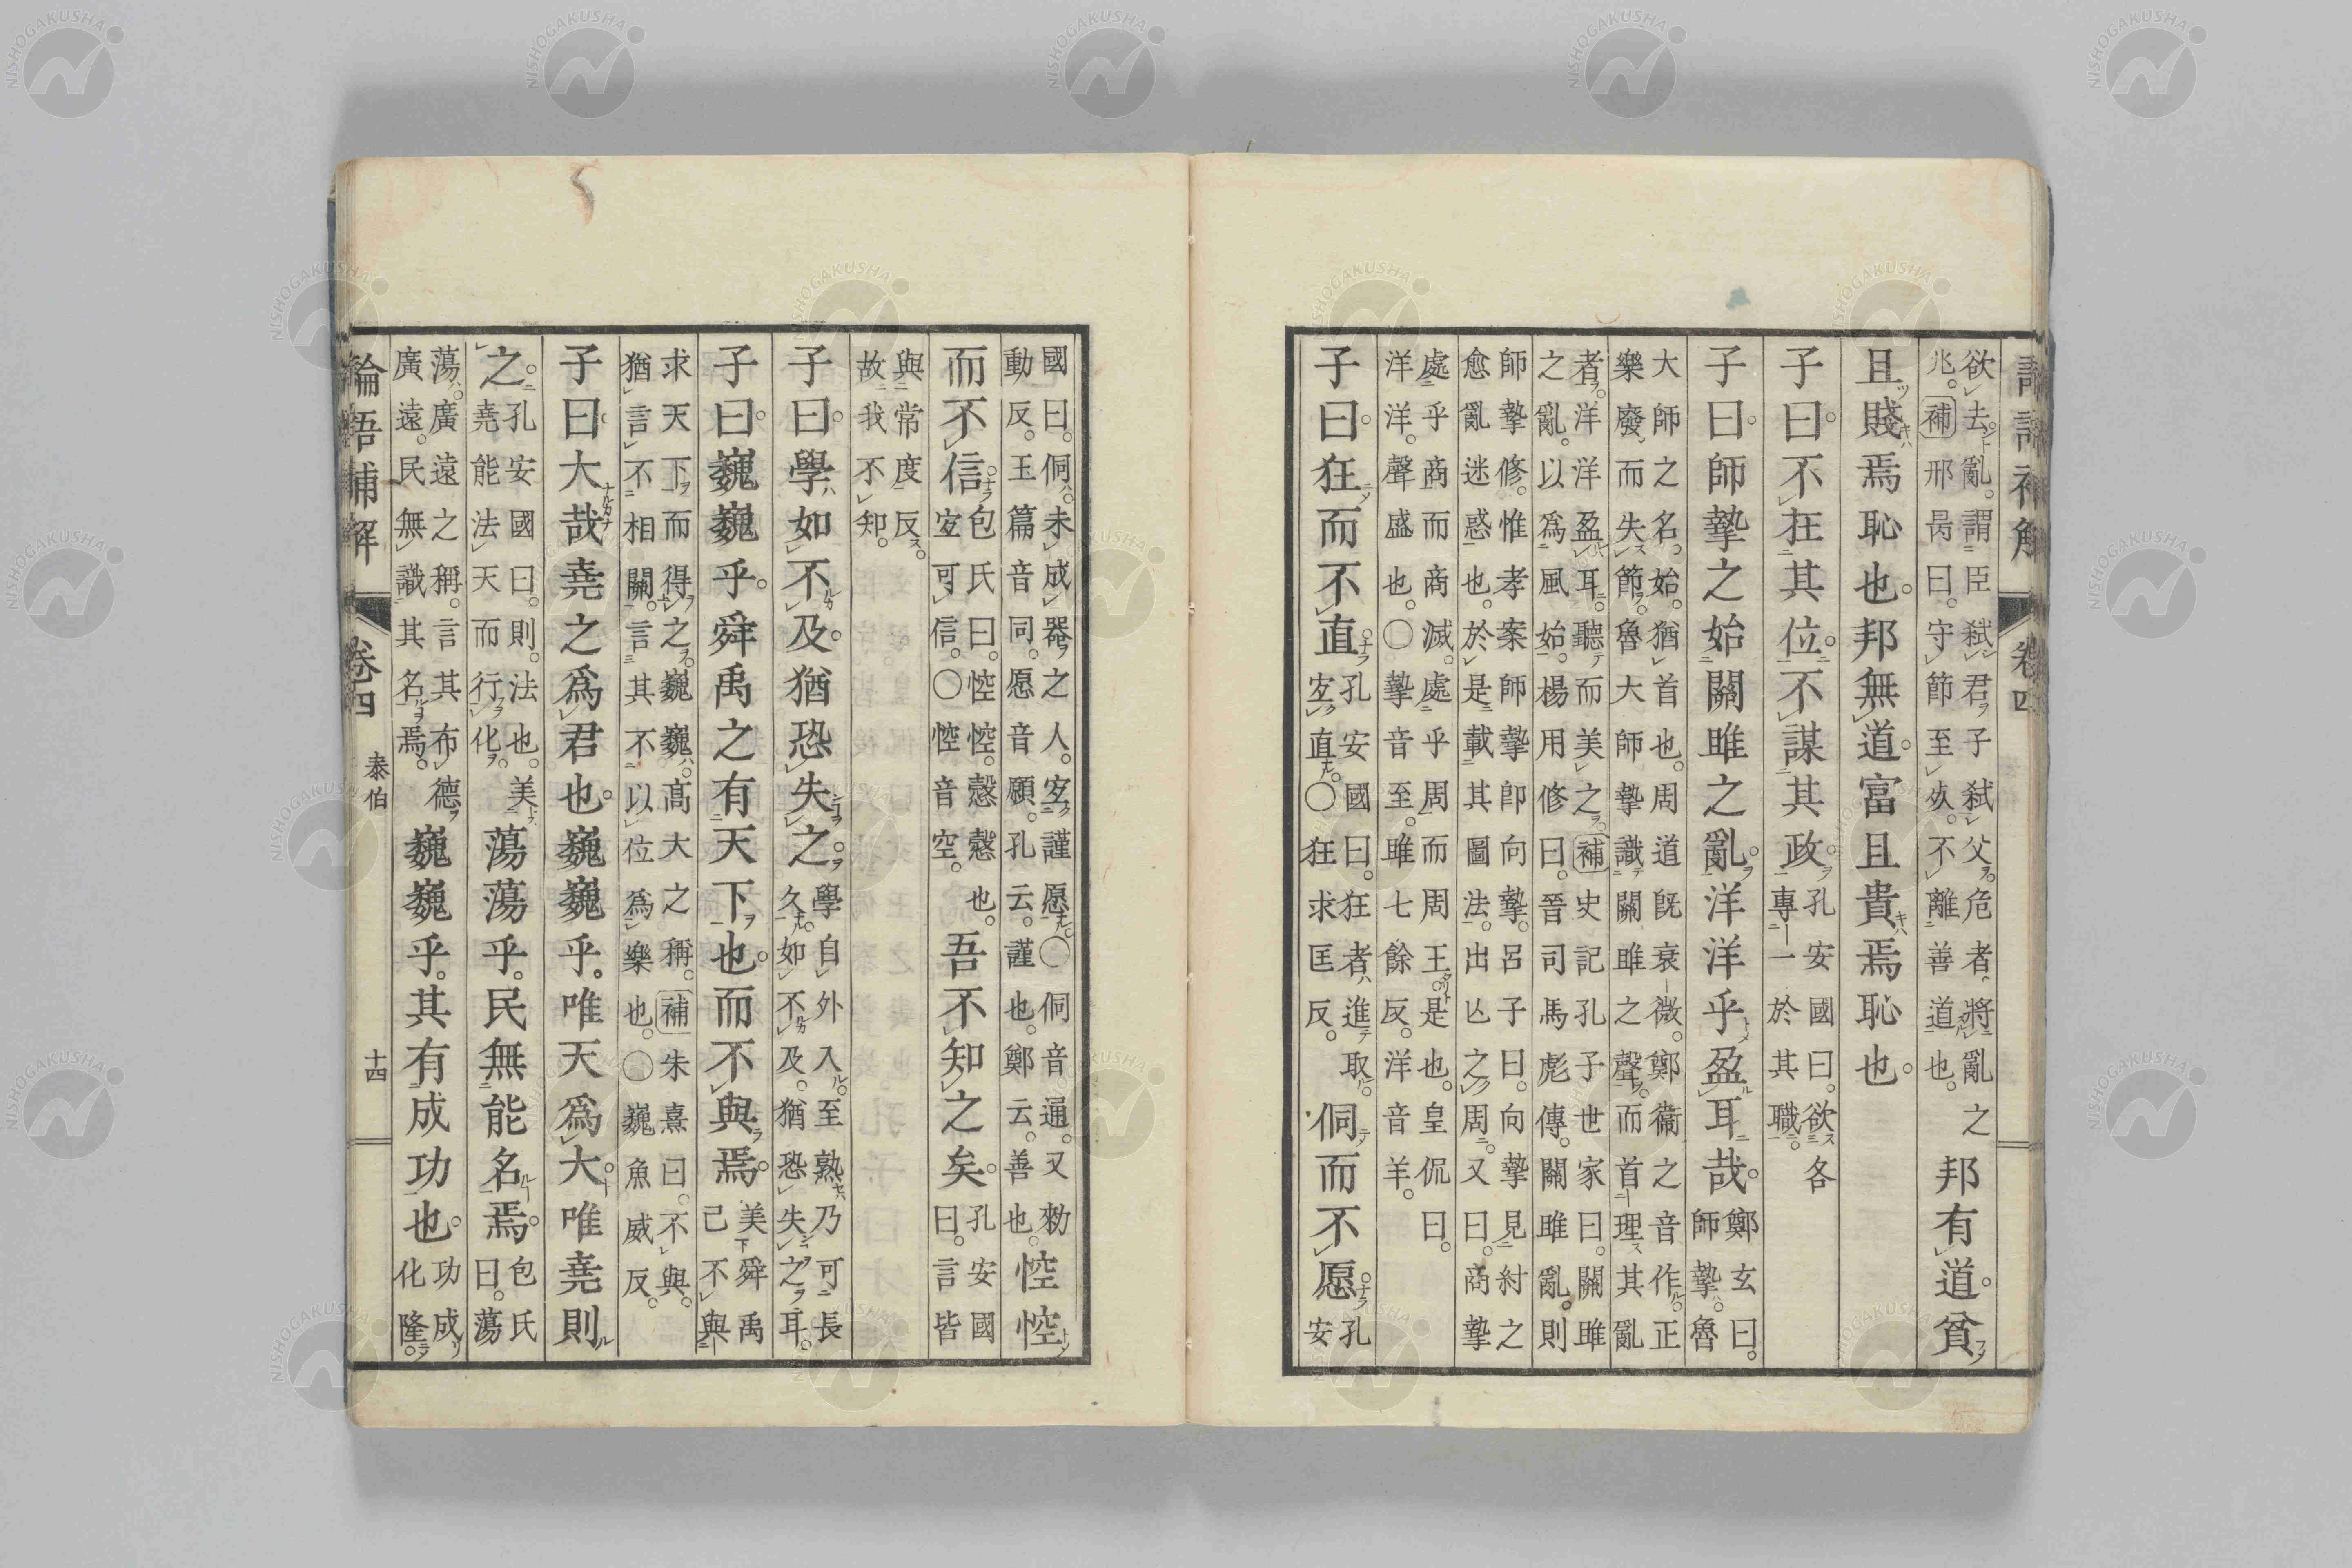 欲去亂。謂臣弒君子弒父。危者。將亂之兆。補邢昺曰。守節至死。不離善道也。邦有道。貧
且賤焉恥也。邦無道。富且貴焉恥也。
子曰。不在其位。不謀其政。孔安國曰。欲各專一於其職。
子曰。師摯之始關雎之亂。洋洋乎盈耳哉。鄭玄曰。師摯。魯
大師之名。始。猶首也。周道既衰微。鄭衞之音作。正樂廢而失節。魯大師摯識關雎之聲。而首理其亂
者。洋洋盈耳。聽而美之。補史記孔子世家曰。關雎之亂。以爲風始。楊用修曰。晉司馬彪傳。關雎亂。則
師摯修。惟孝案師摯卽向摯。呂子曰。向摯見紂之愈亂迷惑也。於是載其圖法。出亡之周。又曰。商摯
處乎商而商滅。處乎周而周王。是也。皇侃曰。洋洋。聲盛也。○摯音至。雎七餘反。洋音羊。
子曰。狂而不直。孔安國曰。狂者進取。宜直。○狂求匡反。侗而不愿。孔安
國曰。侗。未成器之人。宜謹愿。○侗音通。又勑動反。玉篇音同。愿音願。孔云。謹也。鄭云。善也。悾悾
而不信。包氏曰。悾悾。愨愨也。宜可信。○悾音空。吾不知之矣。孔安國曰。言皆
與常度反。故我不知。
子曰。學如不及。猶恐失之。學自外入。至熟乃可長久。如不及。猶恐失之耳。
子曰。巍巍乎。舜禹之有天下也。而不與焉。美舜禹己不與
求天下而得之。巍巍。高大之稱。補朱熹曰。不與。猶言不相關。言其不以位爲樂也。○巍魚威反。
子曰。大哉堯之爲君也。巍巍乎。唯天爲大。唯堯則
之。孔安國曰。則。法也。美堯能法天而行化。蕩蕩乎。民無能名焉。包氏曰。蕩
蕩。廣遠之稱。言其布德廣遠。民無識其名焉。巍巍乎。其有成功也。功成化隆。
論語補解 卷四 泰伯 十四